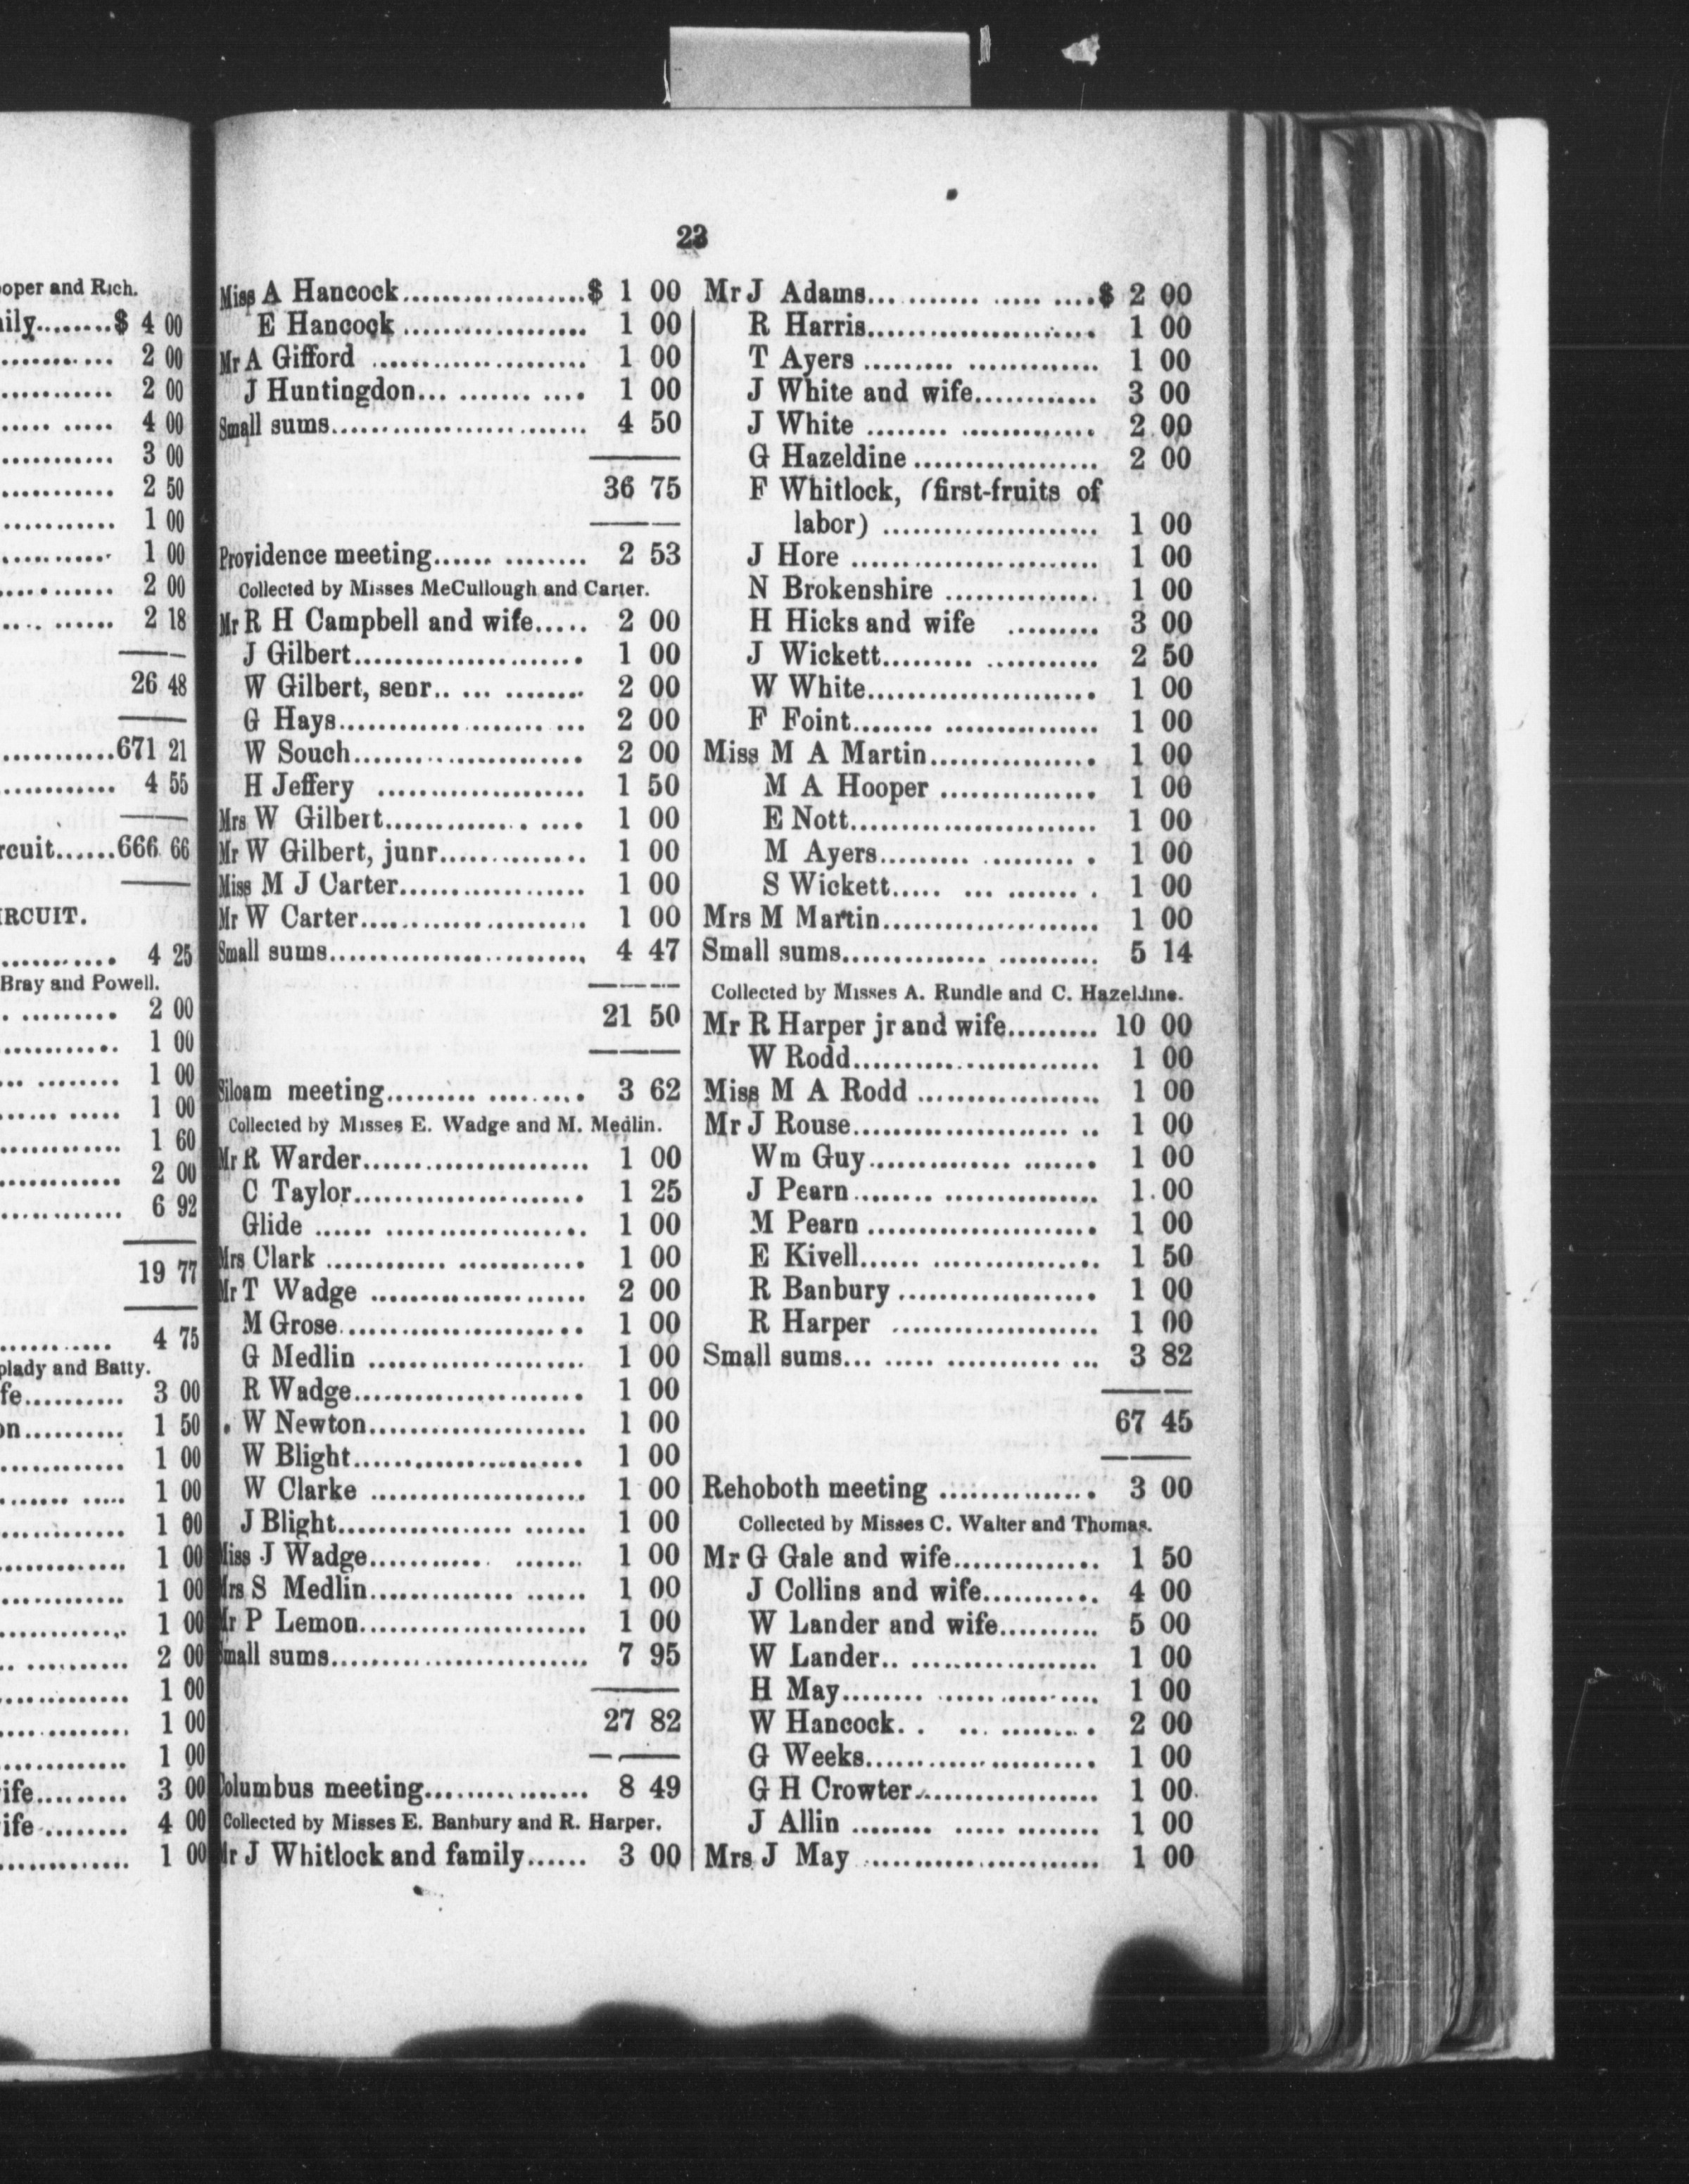 23
oper and Rich.
ily........$ 4 00
............ 2 00
........... 2 00
..... ..... 4 00
............ 3 00
............ 2 50
............ 1 00
............ 1 00
............ 2 00
.... ...... 2 18
26 48
............671 21
............ 4 55
rcuit......666 66
IRCUIT.
............ 4 25
Bray and Powell.
. ......... 2 00
............ 1 00
... ........ 1 00
...... ..... 1 00
............ 1 60
............ 2 00
............ 6 92
19 77
........... 4 75
plady and Batty.
fe.......... 3 00
on.......... 1 50
............ 1 00
....... ..... 1 00
............ 1 00
............ 1 00
............ 1 00
............ 1 00
.. .......... 2 00
............ 1 00
............ 1 00
............ 1 00
ife......... 3 00
ife ........ 4 00
............ 1 00
Miss A Hancock..................$ 1 00
E Hancock .................. 1 00
Mr A Gifford ..................... 1 00
J Huntingdon... ....... .... 1 00
Small sums......................... 4 50
36 75
Providence meeting...... ......... 2 53
Collected by Misses McCullough and Carter.
Mr R H Campbell and wife..... 2 00
J Gilbert....................... 1 00
W Gilbert, senr.. ... ........ 2 00
G Hays.................... ... 2 00
W Souch....................... 2 00
H Jeffery .................... 1 50
Mrs W Gilbert.............. .... 1 00
Mr W Gilbert, junr.............. 1 00
Miss M J Carter.................. 1 00
Mr W Carter...................... 1 00
Small sums......................... 4 47
21 50
Siloam meeting......... ......... 3 62
Collected by Misses E. Wadge and M. Medlin.
Mr R Warder....................... 1 00
C Taylor....................... 1 25
Glide ...... .................... 1 00
Mrs Clark ............ ............ 1 00
Mr T Wadge ..................... 2 00
M Grose........................ 1 00
G Medlin ...................... 1 00
R Wadge....................... 1 00
W Newton..................... 1 00
W Blight....................... 1 00
W Clarke ...................... 1 00
J Blight................. ...... 1 00
Miss J Wadge........... ....... 1 00
Mrs S Medlin.............. ...... 1 00
Mr P Lemon....................... 1 00
Small sums.......................... 7 95
27 82
Columbus meeting................ 8 49
Collected by Misses E. Banbury and R. Harper.
Mr J Whitlock and family...... 3 00
Mr J Adams... ........ ..... ....$ 2 00
R Harris....................... 1 00
T Ayers ......... ............. 1 00
J White and wife............ 3 00
J White ........ ............. 2 00
G Hazeldine .................. 2 00
F Whitlock, (first-fruits of
labor) ..................... 1 00
J Hore ......................... 1 00
N Brokenshire ............... 1 00
H Hicks and wife ......... 3 00
J Wickett......... ........... 2 50
W White....................... 1 00
F Foint........ ............... 1 00
Miss M A Martin................ 1 00
M A Hooper ............... 1 00
E Nott......................... 1 00
M Ayers......... ......... . 1 00
S Wickett..... ... ....... . 1 00
Mrs M Martin..................... 1 00
Small sums.............. .......... 5 14
Collected by Misses A. Rundle and C. Hazeldine.
Mr R Harper jr and wife......... 10 00
W Rodd........................ 1 00
Miss M A Rodd .................. 1 00
Mr J Rouse..................... .. 1 00
Wm Guy.............. ....... 1 00
J Pearn........ ............... 1 00
M Pearn ...................... 1 00
E Kivell...... ................ 1 50
R Banbury ................... 1 00
R Harper .................... 1 00
Small sums... ..... ........... ... 3 82
67 45
Rehoboth meeting ............... 3 00
Collected by Misses C. Walter and Thomas.
Mr G Gale and wife.............. 1 50
J Collins and wife........... 4 00
W Lander and wife.......... 5 00
W Lander.. .................. 1 00
H May........ ............... 1 00
W Hancock. . ... ......... 2 00
G Weeks....................... 1 00
G H Crowter.................. 1 00
J Allin ........ ..... ......... 1 00
Mrs J May ....................... 1 00